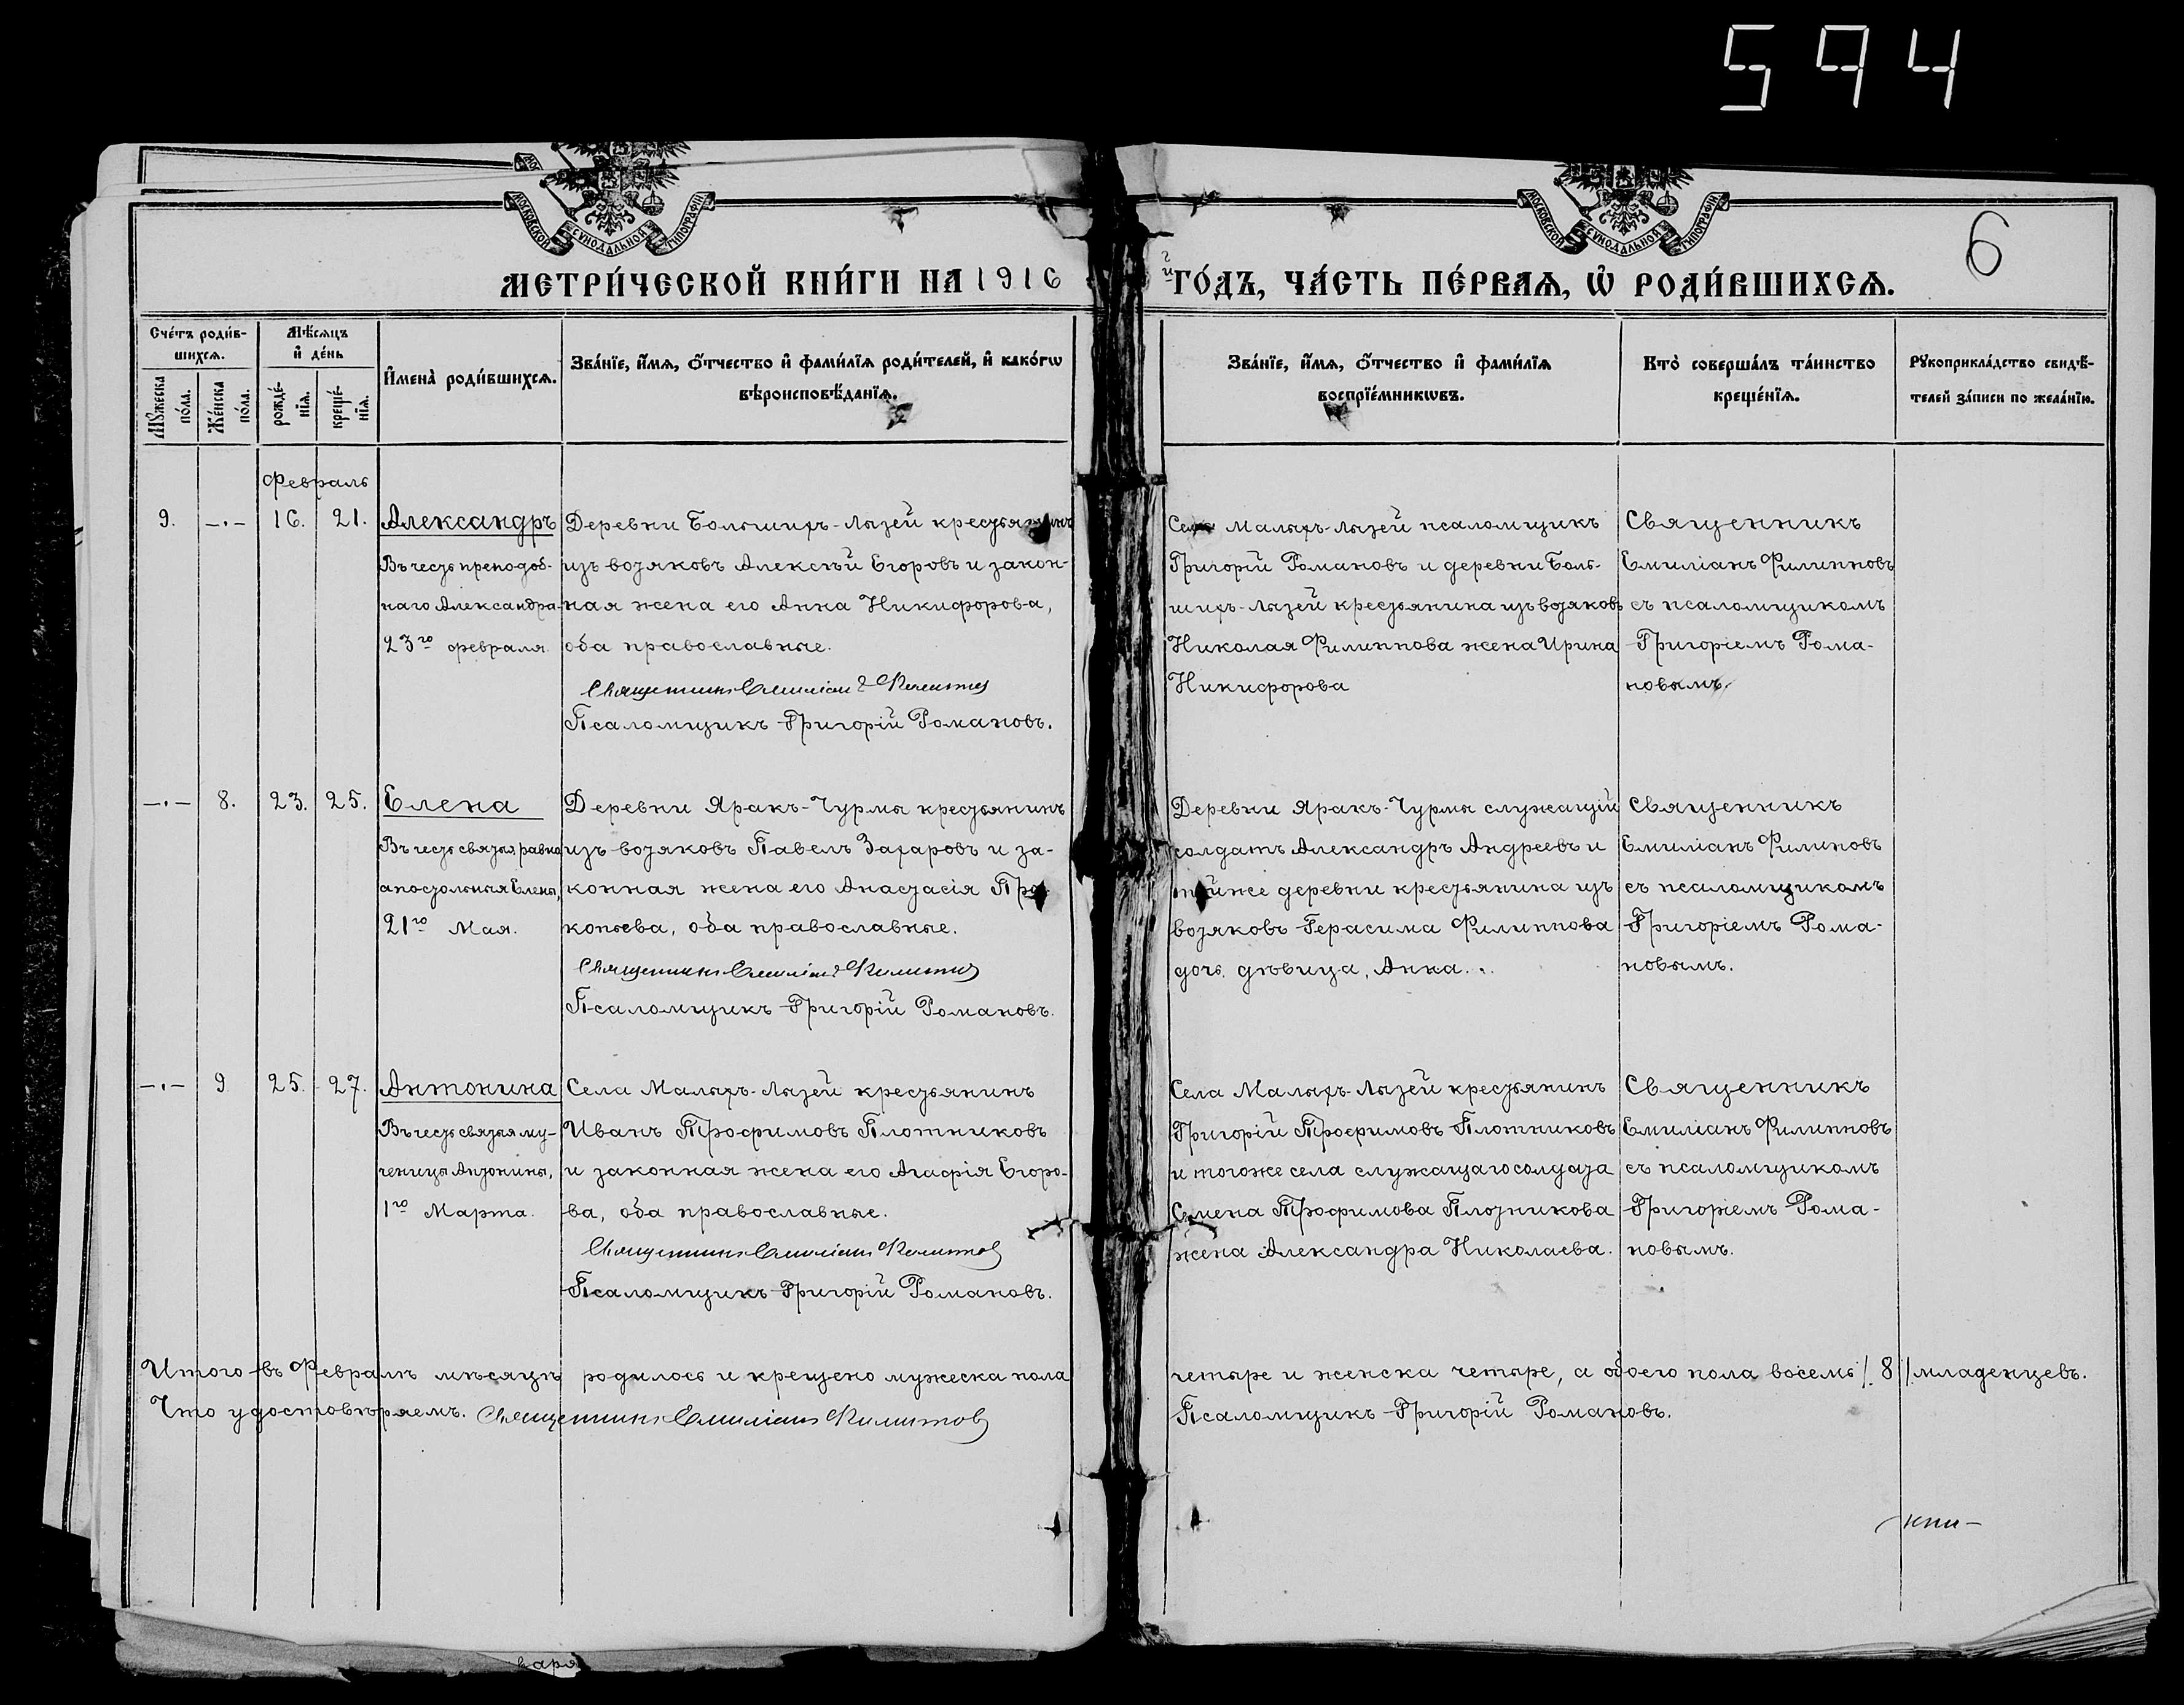 594
МОСКОВСКОЙ СѴНОДАЛЬНОЙ ТИПОГРАФІИ
МОСКОВСКОЙ СѴНОДАЛЬНОЙ ТИПОГРАФІИ
6
МЕТРИ́ЧЕСКОЙ КНИ́ГИ НА 1916 й ГО́ДЪ, ЧА́СТЬ ПЕ́РВАѦ, Ѡ҆ РОДИ́ВШИХСѦ.
Сче́тъ роди́в-
шихсѧ.
Мꙋ́жеска по́ла.
Же́нска по́ла.
Мѣ́сѧцъ
и҆ де́нь
рожде́-
нїѧ.
креще́-
нїѧ.
И҆мена̀ роди́вшихсѧ.
Зва́нїе, и҆́мѧ, ѻ҆́тчество и҆ фами́лїѧ роди́телей, и҆ како́гѡ
вѣроисповѣ́данїѧ.
Зва́нїе, и҆́мѧ, ѻ҆́тчество и҆ фами́лїѧ
воспрїе́мникѡвъ.
Кто̀ соверша́лъ та́инство
креще́нїѧ.
Рꙋкоприкла́дство свидѣ́-
телей за́писи по жела́нїю.
Февраль
9. -"- 16. 21. Александръ
Въ честь преподоб-
наго Александра
23го февраля.
Деревни Большихъ-Лызей крестьянинъ
изъ вотяковъ Алексѣй Егоровъ и закон-
ная жена его Анна Никифорова,
оба православные.
Священникъ Емиліанъ Филиппов
Псаломщикъ Григорій Романовъ.
Села Малыхъ-Лызей псаломщикъ
Григорій Романовъ и деревни Боль-
шихъ-Лызей крестьянина изъ вотяковъ
Николая Филиппова жена Ирина
Никифорова
Священникъ
Емиліанъ Филипповъ
съ псаломщикомъ
Григоріемъ Рома-
новымъ.
-"- 8. 23. 25. Елена
Въ честь святыя равно
апостольныя Елены,
21го Мая.
Деревни Яракъ-Чурмы крестьянинъ
изъ вотяковъ Павелъ Захаровъ и за-
конная жена его Анастасія Про-
копьева, оба православные.
Священникъ Емиліанъ Филиппов
Псаломщикъ Григорій Романовъ.
Деревни Яракъ-Чурмы служащій
солдатъ Александръ Андреевъ и
тойже деревни крестьянина изъ
вотяковъ Герасима Филиппова
дочь девица, Анна.
Священникъ
Емиліанъ Филиповъ
съ псаломщикомъ
Григоріемъ Рома-
новымъ.
-"- 9 25. 27. Антонина
Въ честь святыя му-
ченицы Антонины,
1го Марта.
Села Малыхъ-Лызей крестьянинъ
Иванъ Трофимовъ Плотниковъ
и законная жена его Агафія Егоро-
ва, оба православные.
Священникъ Емиліанъ Филиппов
Псаломщикъ Григорій Романовъ.
Села Малыхъ-Лызей крестьянинъ
Григорій Трофимовъ Плотниковъ
и тогоже села служащаго солдата
Семена Трофимова Плотникова
жена Александра Николаева.
Священникъ
Емиліанъ Филипповъ
съ псаломщикомъ
Григоріемъ Рома-
новымъ.
Итого въ Февралѣ мѣсяцѣ родилось и крещено мужеска пола четыре и женска четыре, а обоего пола восемь /. 8 /. младенцевъ.
Что удостовѣряемъ. Священникъ Емиліанъ Филиппов Псаломщикъ Григорій Романовъ.
кни-